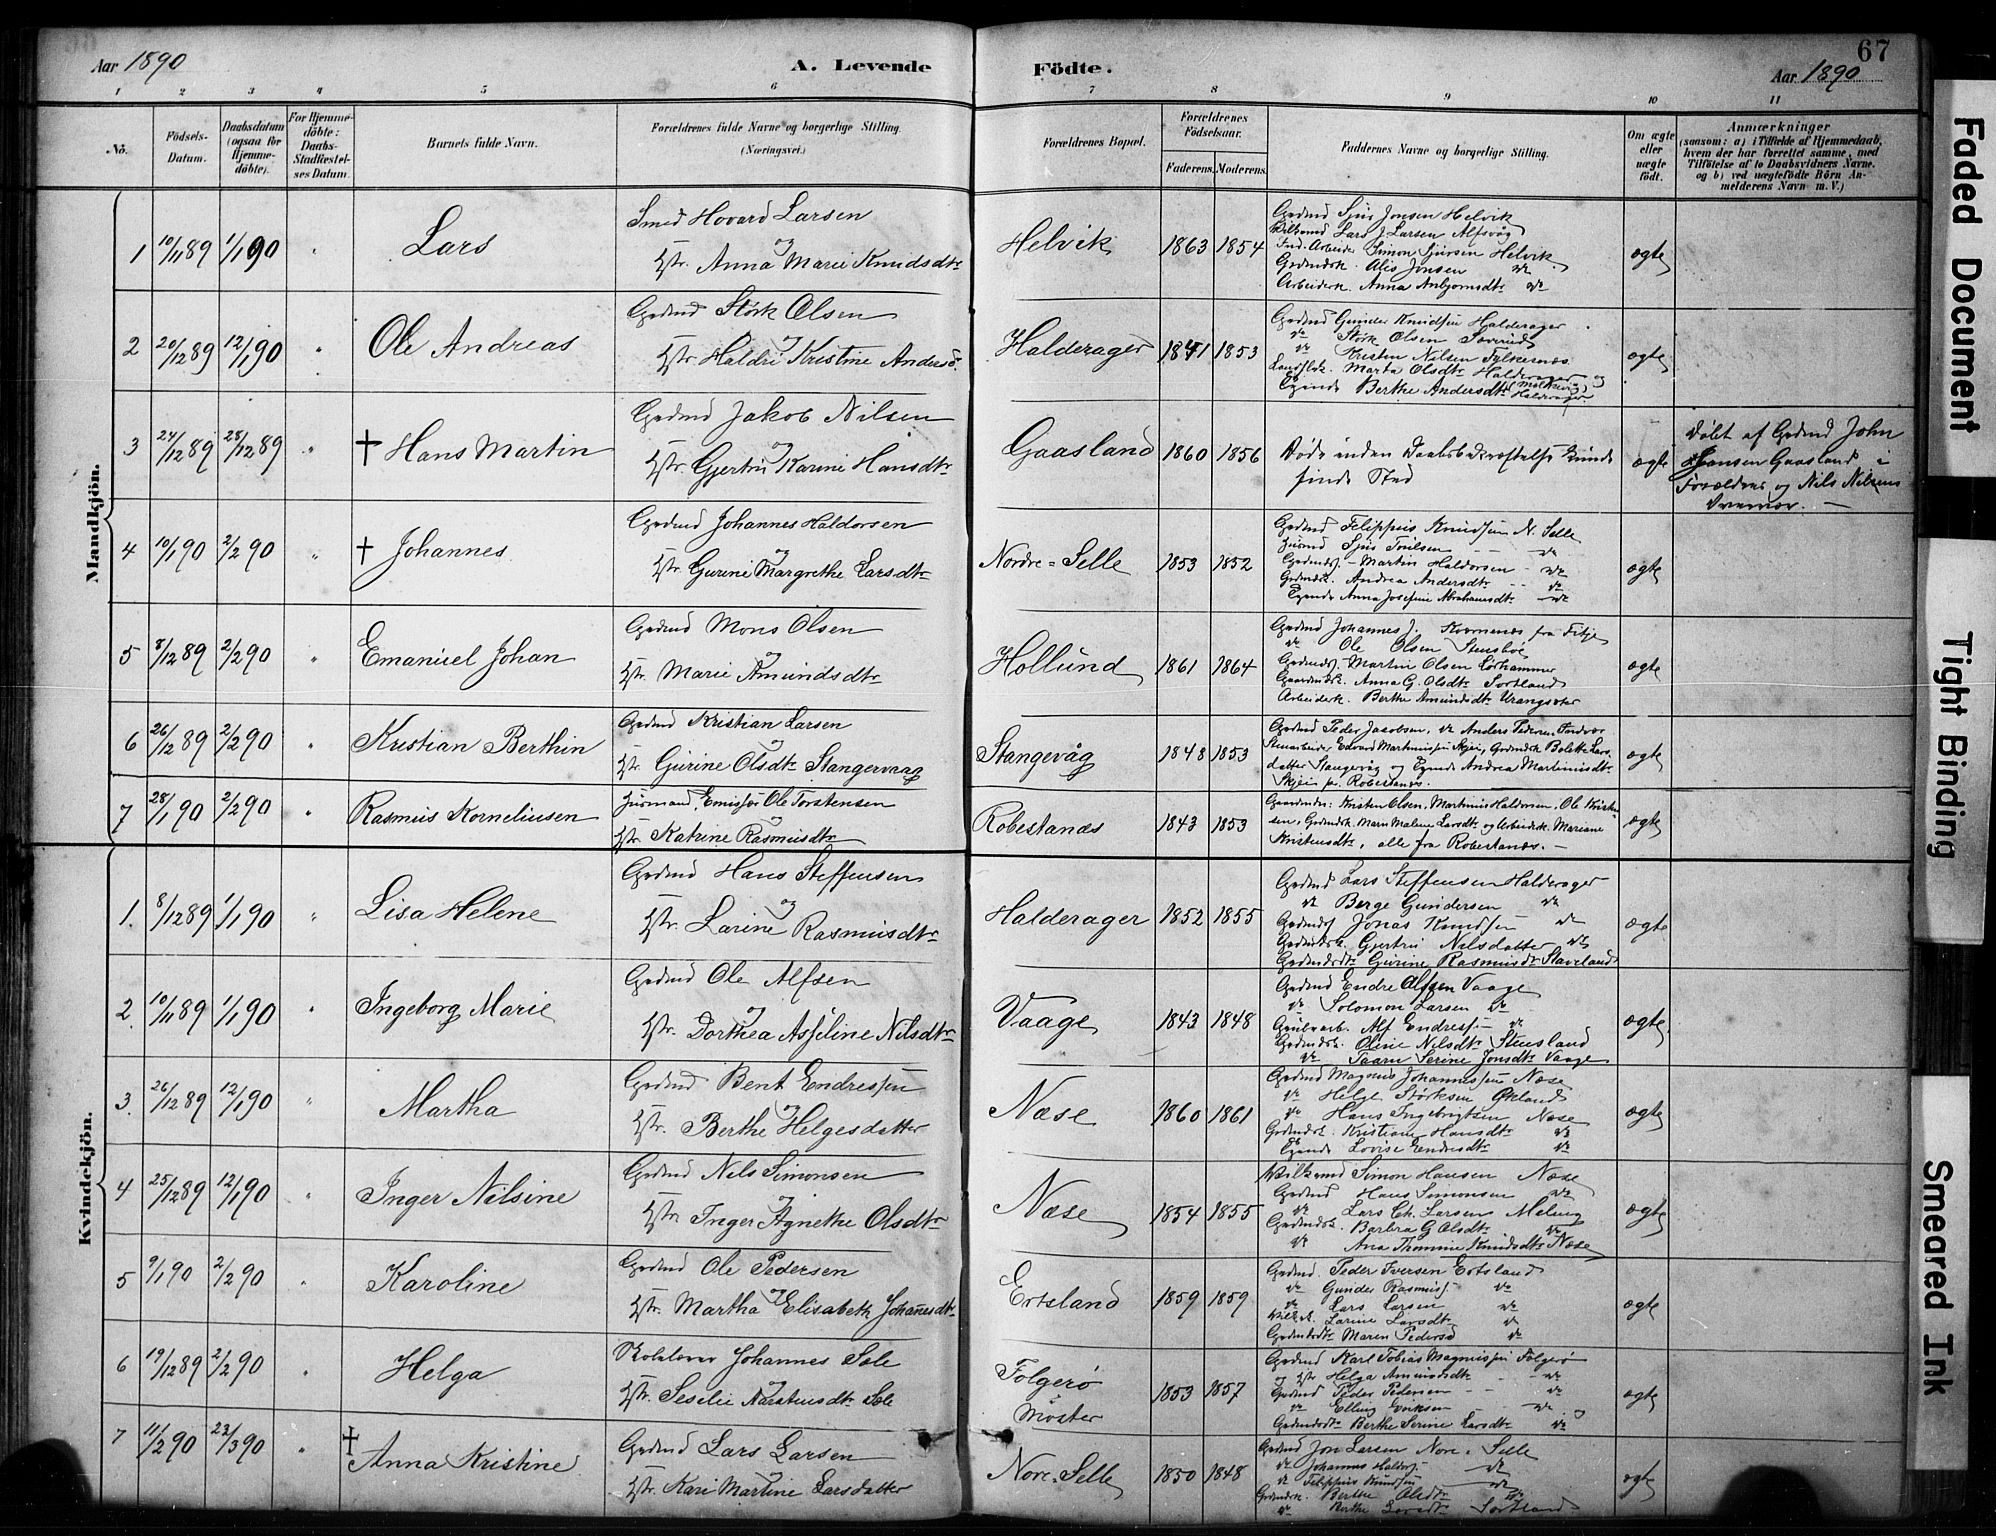 Aar 1890
A. Levende
Födte.
67
Aar 1890
1 2 3 4 5 6 7 8 9 10 11
No.
Födsels-
Datum.
Daabsdatum
(ogsaa for
Hjemme-
döbte).
For Hjemme-
döbte:
Daabs-
Stadfæstel-
ses Datum.
Barnets fulde Navn.
Forældrenes fulde Navne og borgerlige Stilling.
(Næringsvei.)
Forældrenes Bopæl.
Forældrenes
Födselsaar.
Faderens. Moderens.
Faddernes Navne og borgerlige Stilling.
Om ægte
eller
uægte
födt.
Anmærkninger
(saasom: a) i Tilfælde af Hjemmedaab,
hvem der har forrettet samme, med
Tilföielse af to Daabsvidners Navne.
og b) ved uægtefödte Börn An-
melderens Navn m. V.)
Mandkjön.
1 10/11 89 1/1 90 " Lars
Smed Hovard Larsen
og
Hstr. Anna Marie Knudsdtr
Helvik 1863 1854
Grdmd Sjur Jonsen Helvik
Lars J. Larsen Alfsvåg
Ind. Arbeider Simon Sjursen Helvik
Grdmdsk. Alis Jonsen do
Arbeidersk. Anna Anbjørnsdtr do
ægte
2 20/12 89 12/1 90 " Ole Andreas
Grdmd Størk Olsen
og
Hstr. Haldri Kristine Andersd.
Halderager 1841 1853
Grdmd Gunder Knudsen Halderager
do Størk Olsen
do Kristen Nilsen Fylkesnæs
Marta Olsdtr Halderager og
Berthe Andersdtr
Halderager
ægte
3 24/12 89 28/12 89 " † Hans Martin
Grdmd Jakob Nilsen
og
Hstr. Gjertru Karine Hansdtr
Gaasland 1860 1856
Døde inden Daabsbekræftelse kunde
finde Sted
ægte
Døbt af Grdmd John
Hansen Gaasland i
Forældres og Nils Nilsens
4 10/1 90 2/2 90 " † Johannes
Grdmd Johannes Haldorsen
og
Hstr. Gurine Margrethe Larsdtr
Nordre=Selle 1853 1852
Grdmd Filippus Knudsen N. Selle
Husmd Sjur do
Grdmdss. Martin Haldorsen do
Grdmdsk. Andrea Andersdtr do
Anna Josefine Abrahamsdtr do
ægte
5 8/12 89 2/2 90 " Emanuel Johan
Grdmd Mons Olsen
og
Hstr. Marie Amundsdtr
Hollund 1861 1864
Grdmd Johannes J. Kvernenæs fra Fitje
do Ole Olsen
Grdmdss. Martin Olsen Lørhammer
Anna G. Olsdtr Sortland
Arbeidersk. Berthe Amundsdtr
ægte
6 26/12 89 2/2 90 " Kristian Berthin
Grdmd Kristian Larsen
og
Hstr. Gurine Olsdtr Stangervaag
Stangevåg 1848 1853
Grdmd Peder Jacobsen, do Anders Pedersen
Stenarbeider Edvard Martinussen Skjei, Grdmdsk Bolette Lars-
datter Stangevåg og Andrea Martinusdtr
Skjei pr. Robestanæs.
ægte
7 28/1 90 2/2 90 " Rasmus Korneliusen
Husmand, Emissær Ole Torstensen
og
Hstr. Katrine Rasmusdtr
Robestanæs 1843 1853
Kristen Olsen, Martinus Haldorsen, Ole Kristen-
sen, Grdmdsk. Maren Malene Larsdtr og Arbeidersk. Mariane
Kristensdtr, alle fra Robestanæs. —
ægte
Kvindekjön.
1. 8/12 89 1/1 90 " Lisa Helene
Grdmd Hans Steffensen
og
Hstr. Larine Rasmusdtr
Halderager 1852 1855
Grdmd Lars Steffensen Halderager
do Berge Gundersen do
Grdmdss. Jonas Knudsen do
Grdmdsk. Gjertru Nilsdatter do
Grdmdsdtr Gurine Rasmusdtr Staveland
ægte
2. 10/11 89 1/1 90 " Ingeborg Marie
Grdmd Ole Alfsen
og
Hstr. Dorthea Asseline Nilsdtr
Vaage 1843 1848
Grdmd Endre Olsen Vaage
do Solomon Larsen do
Alf Endressen do
Grdmdsk. Oline Nilsdtr Stensland
do Serine Jonsdtr Vaage
ægte
3. 26/12 89 12/1 90 " Martha
Grdmd Bent Endressen
og
Hstr. Berthe Helgesdatter
Næse 1860 1861
Grdmd Magnus Johannessen Næse
do Helge Størksen Økland
do Hans Ingebrigtsen Næse
Grdmdsk. Kristiane Hansdtr do
Lovise Endresdtr do
ægte
4 25/12 89 12/1 90 " Inger Nilsine
Grdmd Nils Simonsen
og
Hstr. Inger Agnethe Olsdtr
Næse 1854 1855
Simon Hansen Næse
Grdmd Hans Simonsen do
do Lars Ch. Larsen Meling
Grdmdsk. Barbra G. Olsdtr do
do Ana Thomine Knudsdtr Næse
ægte
5 9/1 90 2/2 90 " Karoline
Grdmd Ole Pedersen
og
Hstr. Martha Elisabeth Johannesdtr
Ertsland 1859 1859
Grdmd. Peder Iversen Ertsland
do Gunder Rasmuss. do
do Lars Larsen do
Larine Larsdtr do
Grdmdsdtr Maren Pedersd do
ægte
6 19/12 89 2/2 90 " Helga
Skolelærer Johannes Sele
og
Hstr. Seselie Sele
Folgerø
Moster
1853 1857
Grdmd Karl Tobias Magnussen Folgerø
og Hstr Helga Amundsdtr do
Grdmd Peder Pedersen do
do Elling do og
Grdmdsdtr Berthe Serine Larsdtr do
ægte
7 11/2 90 23/3 90 " † Anna Kristine
Grdmd Lars Larsen
og
Hstr. Kari Martine Larsdatter
Nore-Selle 1850 1848
Grdmd Jon Larsen Nore-Selle
do Johannes Haldors. do
do Filippus Knudsen do
Grdmdsk. Berthe Olsdtr do
do Berthe Larsdtr Sortland
ægte
Faded Document
Tight Binding
Smeared Ink